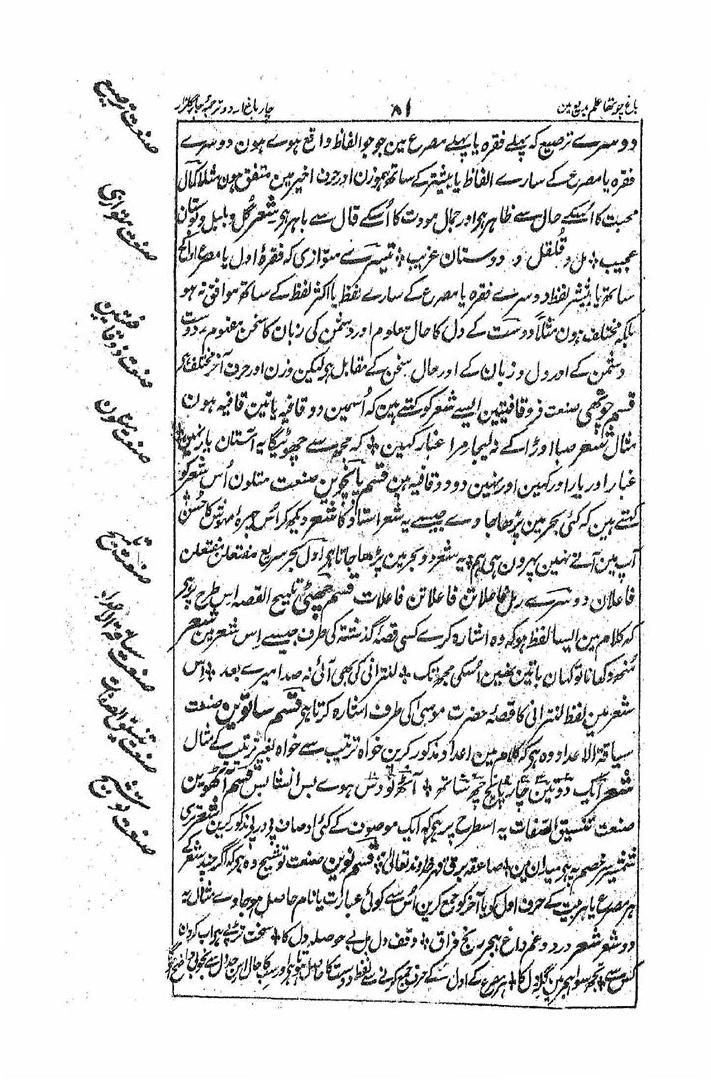 باغ چوتھا علم بدیع مین
۸۱
چار باغ اردو ترجمہ چار گلزار
دوسرے ترصیع کہ پہلے فقرہ یا پہلے مصرع مین جو جو الفاظ واقع ہوے ہون دوسرے
فقرہ یا مصرع کے سارے الفاظ یا بیشتر کے ساتھ ہموزن اور حرف اخیر مین متفق ہون مثلا کمال
محبت کا اُسکے حال سے ظاہر ہی اور جمال مودت کا اُسکے قال سے باہر ہی شعر گل و بلبل و بوستان
عجیب ٭ مل و قلقل و دوستان غریب ٭ تیسرے متوازی کہ فقرۂ اول یا مصرع اول کے
ساتھ یا بیشتر لفظ دوسرے فقرہ یا مصرع کے سارے لفظ یا اکثر لفظ کے ساتھ موافق نہ ہو
بلکہ مختلف ہون مثلاً دوست کے دل کا حال معلوم اور دشمن کی زبان کا سخن مفہوم، دوست
دشمن کے اور دل و زبان کے اور حال سخن کے مقابل ہی لیکن وزن اور حرف آخر مختلف ہی
قسم چوتھی صنعت ذوقافیتین ایسے شعر کو کہتے ہین کہ اُسمین دو قافیہ یا تین قافیہ ہون
مثال شعر صبا اوڑا کے نہ لیجا مرا غبار کہین ٭ کہ مجھ سے چھوٹیگا یہ آستان یار نہین ٭
غبار اور یار اور کہین اور نہین دو دو قافیہ ہین قسم پانچوین صنعت متلون اُس شعر کو
کہتے ہین کہ کئی بحر مین پڑھا جاوے جیسے یہ شعر استاد کا شعر دیکھ کر اُس چہرۂ مہوش کا حسن
آپ مین آتے نہین پہرون ہی ہم ٭ یہ شعر دو بحر مین پڑھا جاتا ہی اول بحر سریع مفتعلن مفتعلن
فاعلان دوسرے رمل فاعلاتن فاعلاتن فاعلات قسم چھٹی تلمیح القصہ اس طرح پر ہی
کہ کلام مین ایسا لفظ ہو کہ وہ اشارہ کرے کسی قصۂ گذشتہ کی طرف جیسے اس شعر مین شعر
منھ دکھانا تو کہان باتین تھین اُسکی مجھ تک ٭ لن ترانی کی بھی آئی نہ صدا میرے بعد ٭ اس
شعر مین لفظ لن ترانی کا قصۂ حضرت موسیٰ کی طرف اشارہ کرتا ہی قسم ساتوین صنعت
سیاقۃ الاعداد وہ ہی کہ کلام مین اعداد مذکور کرین خواہ ترتیب سے خواہ بغیر ترتیب کے مثال
شعر ایک دو تین چار پانچ چھ سات ٭ آٹھ نو دس ہوے بس انشا بس قسم آٹھوین
صنعت تنسیق الصفات یہ اسطرح پر ہی کہ ایک موصوف کے کئی اوصاف پے در پے مذکور کرین شعر تری
شمشیر خصم پہ ہی میدان مین ٭ صاعقہ برق قہر خداوند تعالیٰ ٭ قسم نوین صنعت توشیح وہ ہی کہ اگر چند شعر کے
ہر مصرع یا ہر بیت کے حرف اول کو یا آخر کو جمع کرین اُس سے کوئی عبارت یا نام حاصل ہو جاوے مثال یہ
دو شعر شعر درد و غم داغ ہجر رنج فراق ٭ وقف دل بے حوصلہ دل کا ٭ سخت تڑپے ہی اب
کس سے ہجر مین گلہ دل کا ٭ ہر مصرع کے اول کے حرف جمع کرنے سے لفظ دوست کا حاصل ہوتا ہی
صنعت ترصیع
صنعت متوازی
صنعت ذوقافیتین
صنعت متلون
صنعت تلمیح
صنعت سیاقۃ الاعداد
صنعت تنسیق الصفات
صنعت توشیح